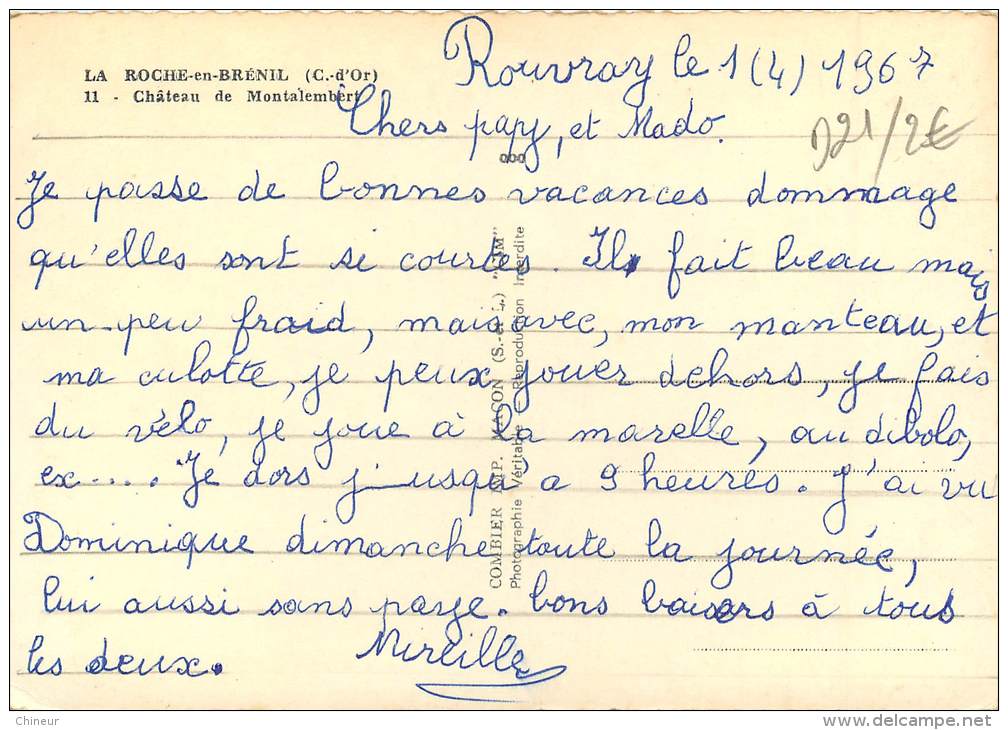 LA ROCHE-en-BRÉNIL (C.-d'Or)
11 - Château de Montalembert
Rouvray le 1 (4) 1967
Chers papy, et Mado.
D21/2€
Je passe de bonnes vacances dommage
qu'elles sont si courtes. Il fait beau mais
un peu fraid, mais avec, mon manteau, et
ma culotte, je peux jouer dehors, je fais
du vélo, je joue à la marelle, au dibolo,
ex.... Je dors jusqu'a 9 heures. J'ai vu
Dominique dimanche toute la journée,
lui aussi sans
bons baisers à tous
les deux. Mireille
COMBIER IMP. MACON (S.-et-L.) "CIM"
Photographie Véritable - Reproduction Interdite
Chineur
www.delcampe.net